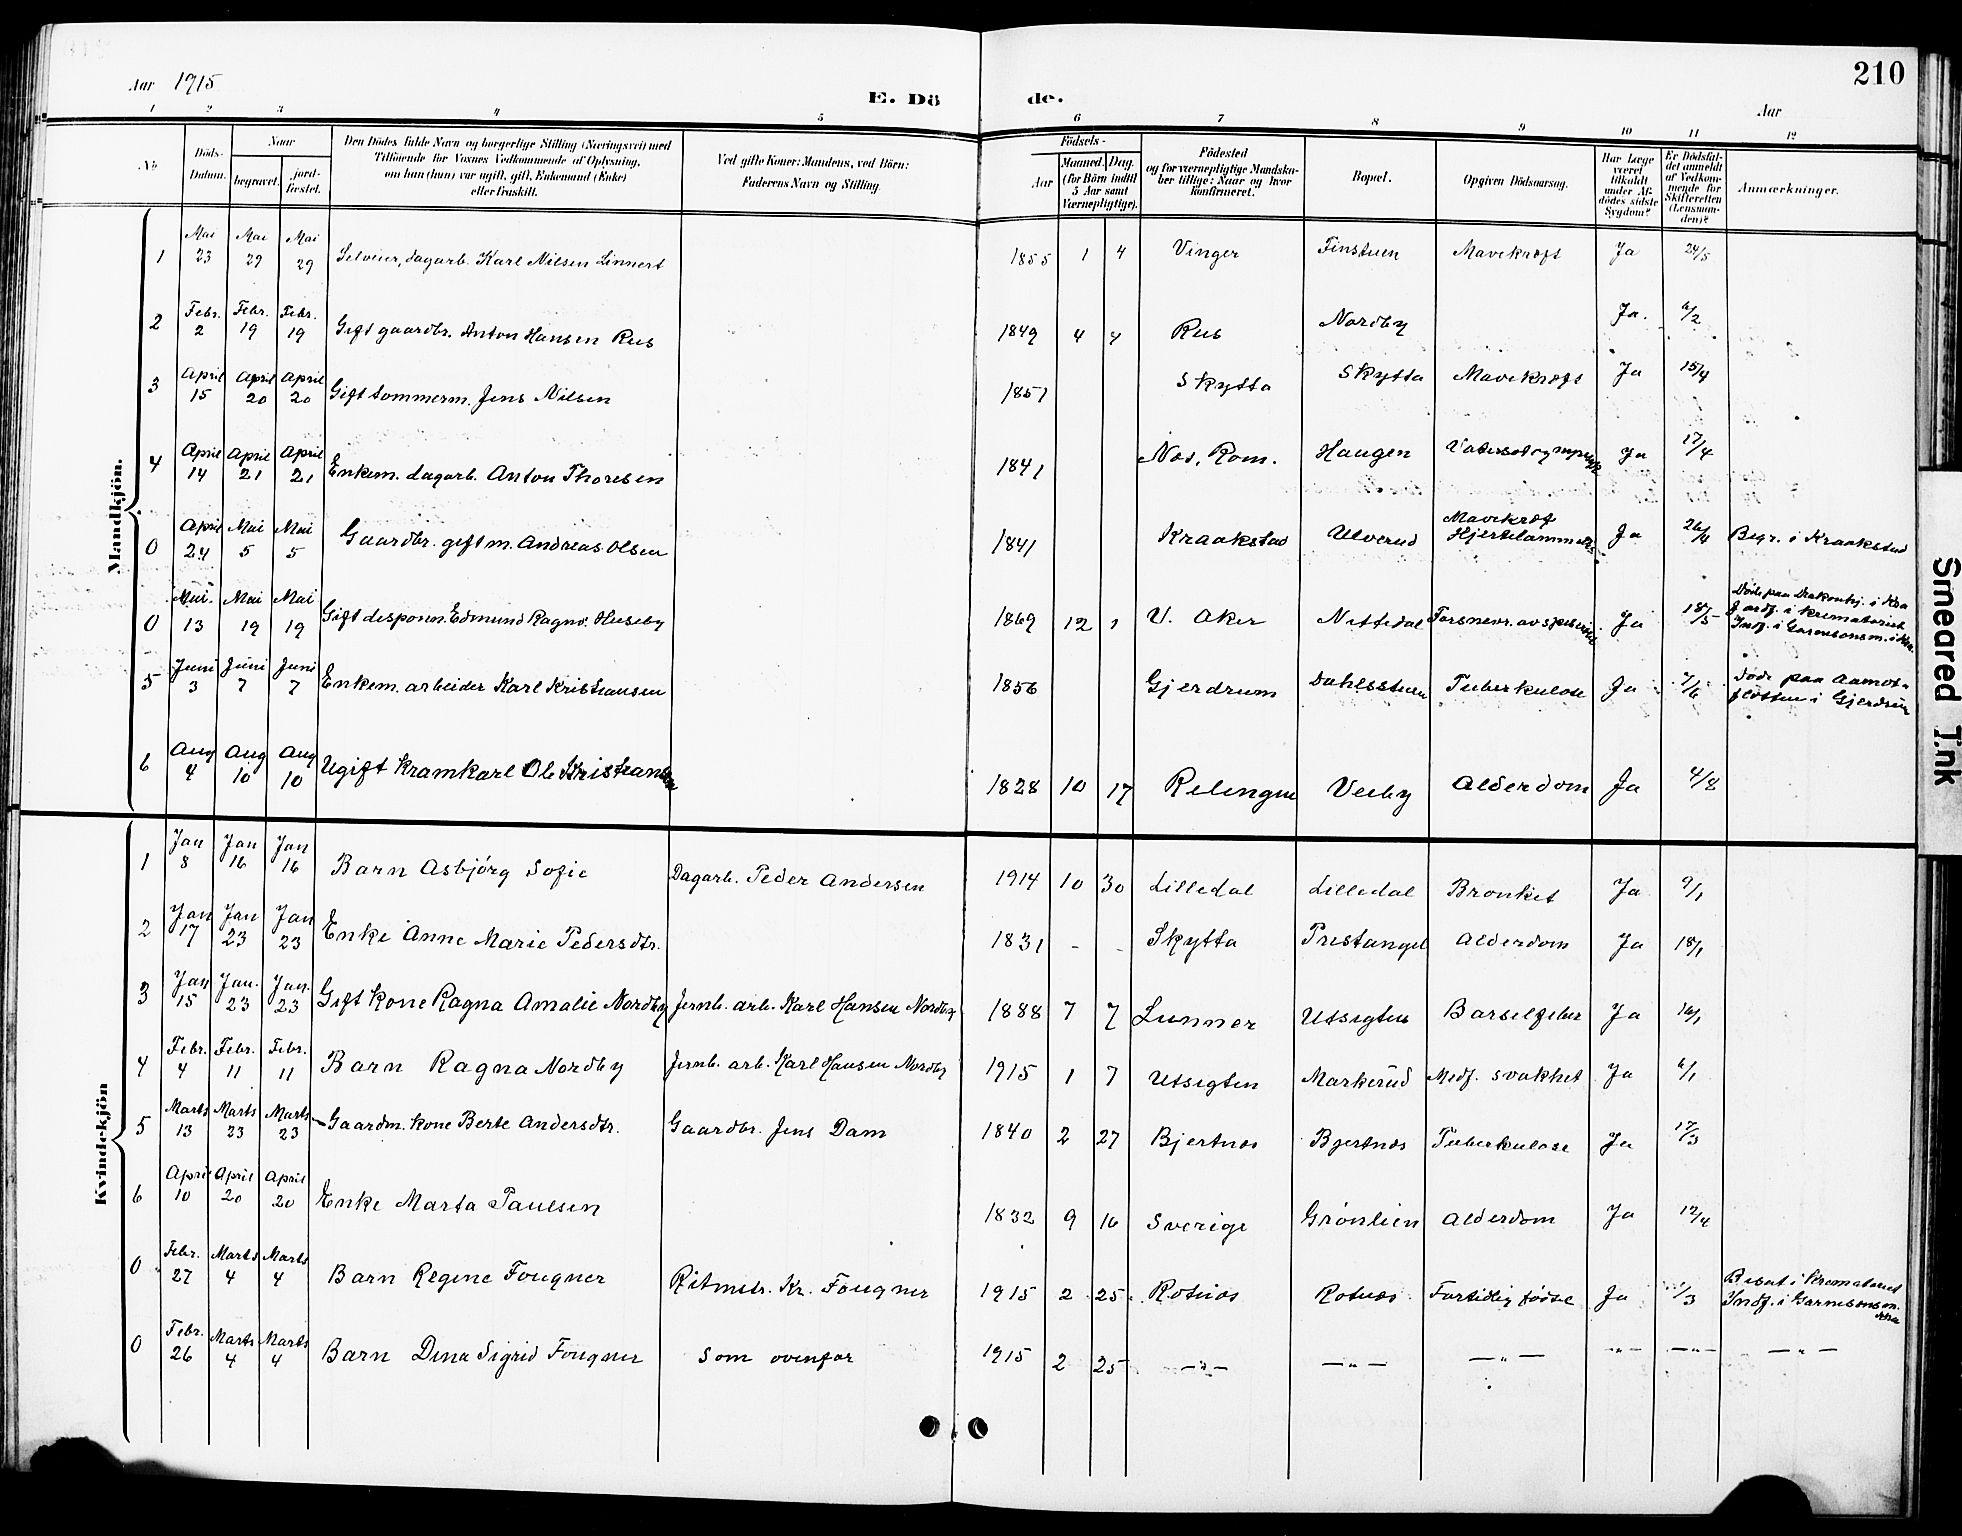 210
Aar 1915
E. Dö de.
Aar
1 2 3 4 5 6 7 8 9 10 11 12
No
Döds-Datum.
Naar
begravet.
jord-fæstet.
Den Dödes fulde Navn og borgerlige Stilling (Næringsvei) med
Tilföiende for Voxnes Vedkommende af Oplysning,
om han (hun) var ugift, gift, Enkemand (Enke)
eller fraskilt.
Ved gifte Koner: Mandens, ved Börn:
Faderens Navn og Stilling.
Födsels-
Aar
Maaned. Dag.
(for Börn indtil
5 Aar samt
Værnepligtige).
Födested
og for værnepligtige Mandska-
ber tillige: Naar og hvor
konfirmeret.
Bopæl.
Opgiven Dödsaarsag.
Har Læge
været
tilkaldt
under Af-
dödes sidste
Sygdom?
Er Dödsfal-
det anmeldt
af Vedkom-
mende for
Skifteretten
(Lensman-
den)?
Anmærkninger.
Mandkjön.
1 Mai 23 Mai 29 Mai 29 Selveier, dagarb. Karl Nilsen Linnert 1855 1 4 Vinger Finstuen Mavekræft Ja 24/5
2 Febr. 2 Febr. 19 Febr. 19 Gift gaardbr. Anton Hansen Rus 1849 4 4 Rus Nordby Ja. 6/2
3 April 15 April 20 April 20 Gift tommerm. Jens Nilsen 1851 Skytta Skytta Mavekræft Ja 15/4
4 April 14 April 21 April 21 Enkem. dagarb. Anton Thoresen 1841 Næs, Rom. Haugen Ja 17/4
0 April 24 Mai 5 Mai 5 Gaardbr. gift m. Andreas Olsen 1841 Kraakstad Ulverud Mavekræf Hjertelammelse Ja 26/4 Begr. i Kraakstad
0 Mai 13 Mai 19 Mai 19 Gift disponn. Edmund Ragnv. Huseby 1869 12 1 V. Aker Nittedal Forsnevr. av spiserør Ja 18/5 Døde paa Diakonhj. i Kra
Jordf. i krematoriet
Indf. i Garnisonsm. i Kra.
5 Juni 3 Juni 7 Juni 7 Enkem. arbeider Karl Kristiansen 1856 Gjerdrum Dahlsstuen Tuberkulose Ja 7/6 Døde paa Aamot-
flotten i Gjerdrum
6 Aug 4 Aug 10 Aug 10 Ugift kramkarl Ole Kristiansen 1828 10 17 Relingen Veeby Alderdom Ja 4/8
Kvindekjön
1 Jan 8 Jan 16 Jan 16 Barn Asbjörg Sofie Dagarb. Peder Andersen 1914 10 30 Lilledal Lilledal Bronkit Ja 9/1
2 Jan 17 Jan 23 Jan 23 Enke Anne Marie Pedersdtr. 1831 - - Skytta Prestangel Alderdom Ja 18/1
3 Jan 15 Jan. 23 Jan. 23 Gift kone Ragna Amalie Nordby Jernb. arb. Karl Hansen Nordby 1888 7 7 Lunner Utsigten Barselfeber Ja 16/1
4 Febr. 4 Febr. 11 Febr. 11 Barn Ragna Nordby Jernb. arb. Karl Hansen Nordby 1915 1 7 Utsigten Markerud Medf. svakhet Ja 6/1
5 Marts 13 Marts 23 Marts 23 Gaardm. kone Berte Andersdtr. Gaardbr. Jens Dam 1840 2 27 Bjertnæs Bjertnæs Tuberkulose Ja 17/3
6 April 10 April 20 April 20 Enke Marta Paulsen 1832 9 16 Sverige Grønlien Alderdom Ja 12/4
0 Febr. 27 Marts 4 Marts 4 Barn Regine Fougner Ritmstr. Kr. Fougner 1915 2 25 Rotnæs Rotnæs Fortidlig fødse Ja 1/3 Bisat i Krematoriet
Indf. i Garnisonsm.
Kra
0 Febr. 26 Marts 4 Marts 4 Barn Dina Sigrid Fougner Som ovenfor 1915 2 25 —"— —"— —"— —"— —"— —"—
Smeared Ink